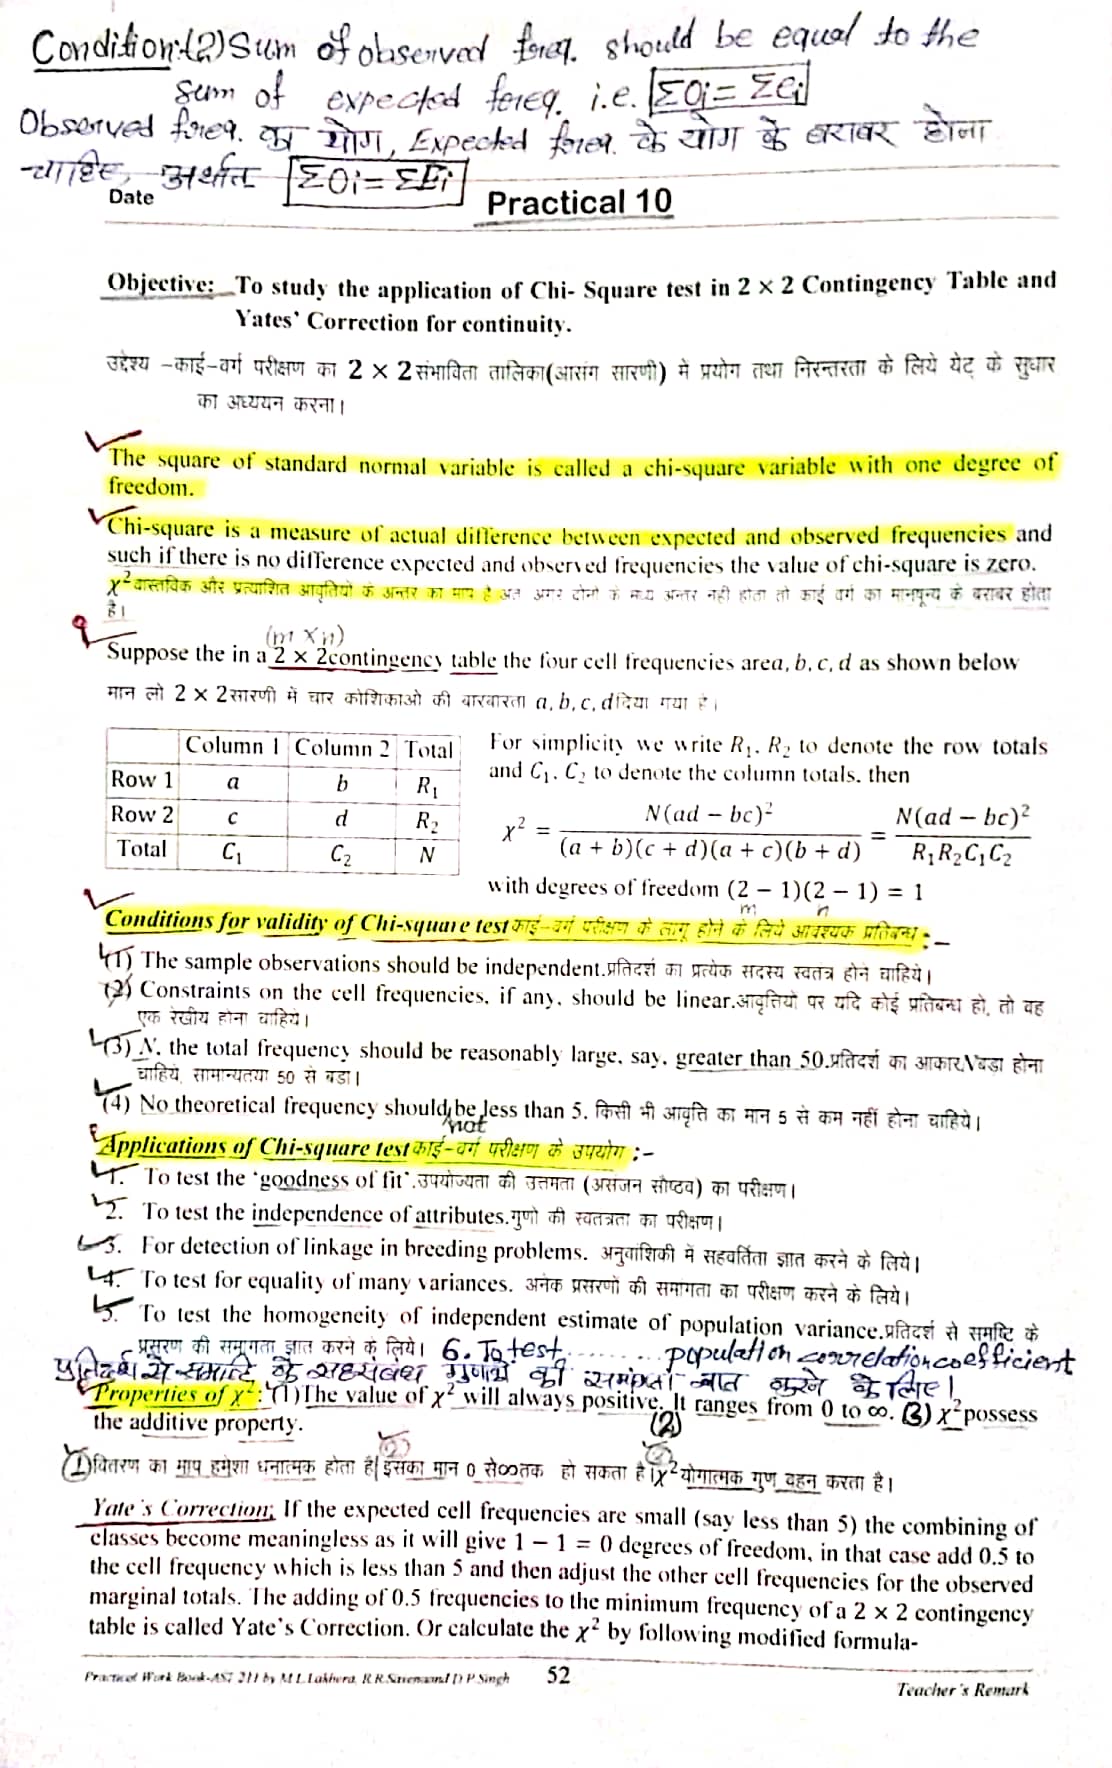 Condition:(2) Sum of observed freq. should be equal to the
sum of expected freq. i.e. ΣOi = Σei
Observed freq. का योग, Expected freq. के योग के बराबर होना
चाहिए, अर्थात ΣOi = ΣEi
Date
Practical 10
Objective: To study the application of Chi- Square test in 2 × 2 Contingency Table and
Yates' Correction for continuity.
उद्देश्य –काई–वर्ग परीक्षण का 2 × 2संभाविता तालिका(आसंग सारणी) में प्रयोग तथा निरन्तरता के लिये येट् के सुधार
का अध्ययन करना।
The square of standard normal variable is called a chi-square variable with one degree of
freedom.
Chi-square is a measure of actual difference between expected and observed frequencies and
such if there is no difference expected and observed frequencies the value of chi-square is zero.
χ² वास्तविक और प्रत्याशित आवृतियों के अन्तर का माप है अत अगर दोनो के मध्य अन्तर नही होता तो काई वर्ग का मानशून्य के बराबर होता
है।
(m × n)
Suppose the in a 2 × 2contingency table the four cell frequencies area, b, c, d as shown below
मान लो 2 × 2सारणी में चार कोशिकाओ की बारबारता a, b, c, dदिया गया है।
Column 1 Column 2 Total
Row 1 a b R₁
Row 2 c d R₂
Total C₁ C₂ N
For simplicity we write R₁, R₂ to denote the row totals
and C₁, C₂ to denote the column totals, then
χ² = N(ad − bc)² / (a + b)(c + d)(a + c)(b + d) = N(ad − bc)² / R₁R₂C₁C₂
with degrees of freedom (2 − 1)(2 − 1) = 1
m n
Conditions for validity of Chi-square test काई–वर्ग परीक्षण के लागू होने के लिये आवश्यक प्रतिबन्ध :–
(1) The sample observations should be independent.प्रतिदर्श का प्रत्येक सदस्य स्वतंत्र होने चाहिये।
(2) Constraints on the cell frequencies, if any, should be linear.आवृत्तियो पर यदि कोई प्रतिबन्ध हो, तो वह
एक रेखीय होना चाहिये।
(3) N, the total frequency should be reasonably large, say, greater than 50.प्रतिदर्श का आकारNबड़ा होना
चाहिये, सामान्यतया 50 से बडा।
(4) No theoretical frequency should be less than 5. किसी भी आवृत्ति का मान 5 से कम नहीं होना चाहिये।
not
Applications of Chi-square test काई–वर्ग परीक्षण के उपयोग :–
1. To test the 'goodness of fit'.उपयोज्यता की उत्तमता (असंजन सौष्ठव) का परीक्षण।
2. To test the independence of attributes.गुणो की स्वतंत्रता का परीक्षण।
3. For detection of linkage in breeding problems. अनुवांशिकी में सहवर्तिता ज्ञात करने के लिये।
4. To test for equality of many variances. अनेक प्रसरणों की समांगता का परीक्षण करने के लिये।
5. To test the homogeneity of independent estimate of population variance.प्रतिदर्श से समष्टि के
प्रसरण की समांगता ज्ञात करने के लिये। 6. To test ........ population correlation coefficient
प्रतिदर्श से समष्टि के सहसंबंध गुणांक की समांगता ज्ञात करने के लिए।
Properties of χ²: (1)The value of χ² will always positive. It ranges from 0 to ∞. (3) χ² possess
(2)
the additive property.
(2) (3)
(1)वितरण का माप हमेशा धनात्मक होता है। इसका मान 0 से∞तक हो सकता है।χ²योगात्मक गुण वहन करता है।
Yate's Correction: If the expected cell frequencies are small (say less than 5) the combining of
classes become meaningless as it will give 1 − 1 = 0 degrees of freedom, in that case add 0.5 to
the cell frequency which is less than 5 and then adjust the other cell frequencies for the observed
marginal totals. The adding of 0.5 frequencies to the minimum frequency of a 2 × 2 contingency
table is called Yate's Correction. Or calculate the χ² by following modified formula-
Practical Work Book-AST 211 by M.L.Lakhera, R.R.Saxena and D.P.Singh 52
Teacher's Remark